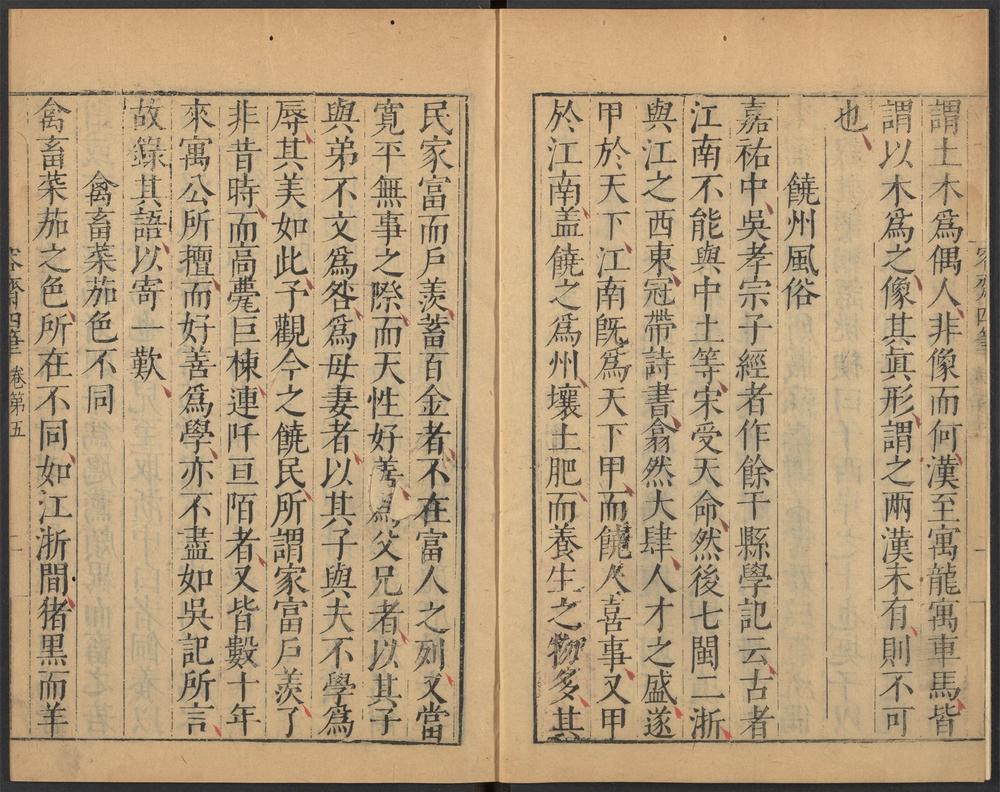 謂土木爲偶人非像而何漢至寓龍寓車馬皆
謂以木爲之像其眞形謂之兩漢未有則不可
也
饒州風俗
嘉祐中吳孝宗子經者作餘干縣學記云古者
江南不能與中土等宋受天命然後七閩二浙
與江之西東冠帶詩書翕然大肆人才之盛遂
甲於天下江南旣爲天下甲而饒人喜事又甲
於江南蓋饒之爲州壤土肥而養生之物多其
民家富而戶羨蓄百金者不在富人之列又當
寬平無事之際而天性好善爲父兄者以其子
與弟不文爲咎爲母妻者以其子與夫不學爲
辱其美如此予觀今之饒民所謂家富戶羨了
非昔時而高甍巨棟連阡亘陌者又皆數十年
來寓公所擅而好善爲學亦不盡如吳記所言
故錄其語以寄一歎
禽畜菜茄色不同
禽畜菜茄之色所在不同如江浙間猪黑而羊
容齋四筆 卷第五 一